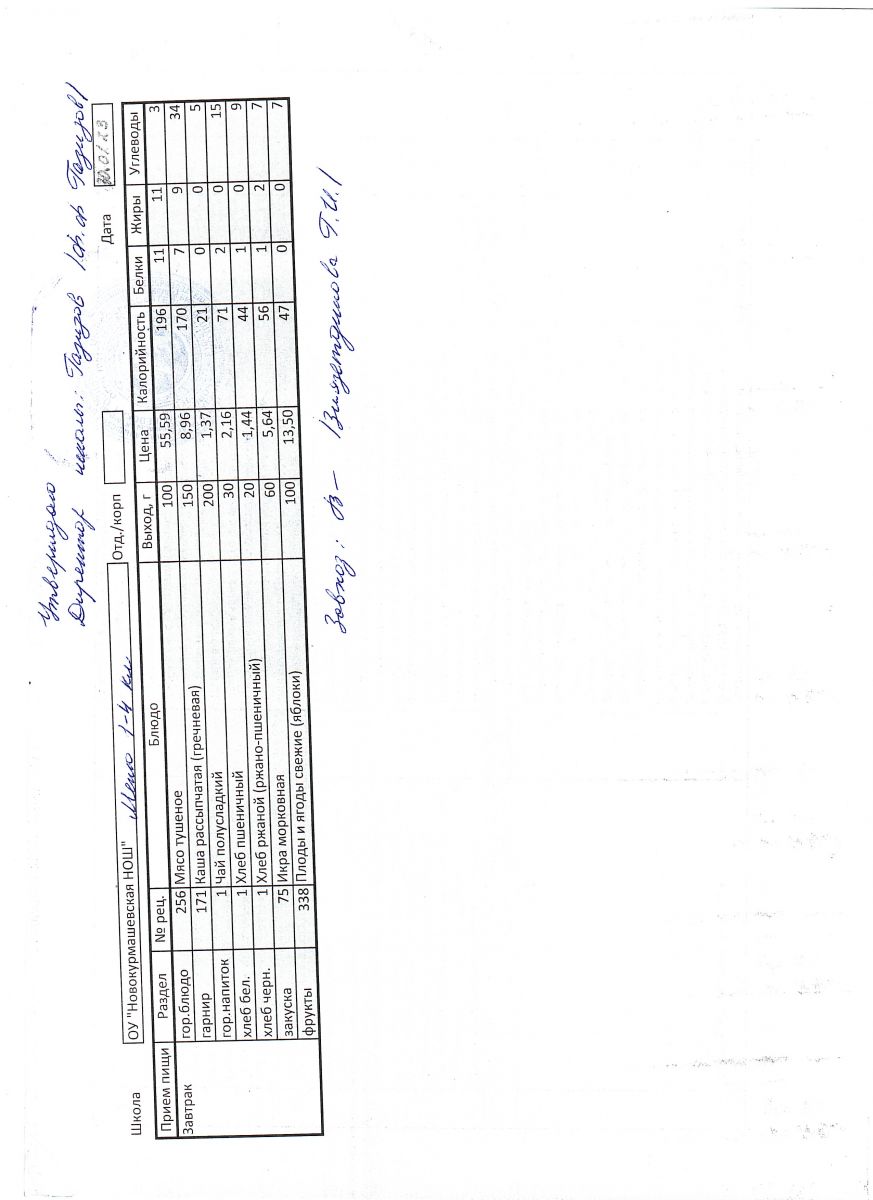 Утверждаю
Директор школы: Газизов /Ф.Ф Газизов/
Школа ОУ "Новокурмашевская НОШ" Меню 1-4 кл Отд./корп Дата 30.01.23
Прием пищи Раздел № рец. Блюдо Выход, г Цена Калорийность Белки Жиры Углеводы
Завтрак гор.блюдо 256 Мясо тушеное 100 55,59 196 11 11 3
гарнир 171 Каша рассыпчатая (гречневая) 150 8,96 170 7 9 34
гор.напиток 1 Чай полусладкий 200 1,37 21 0 0 5
хлеб бел. 1 Хлеб пшеничный 30 2,16 71 2 0 15
хлеб черн. 1 Хлеб ржаной (ржано-пшеничный) 20 1,44 44 1 0 9
закуска 75 Икра морковная 60 5,64 56 1 2 7
фрукты 338 Плоды и ягоды свежие (яблоки) 100 13,50 47 0 0 7
Завхоз: В- Т.И./